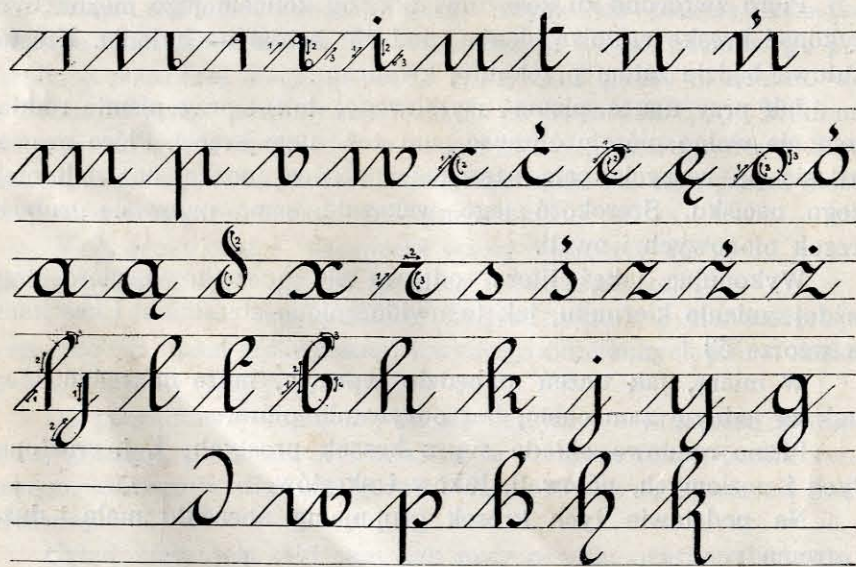 i u t n ń
m p v w c ć e ę o ó
a ą d x s ś z ź ż
f l ł b h k j y g
d w p h k